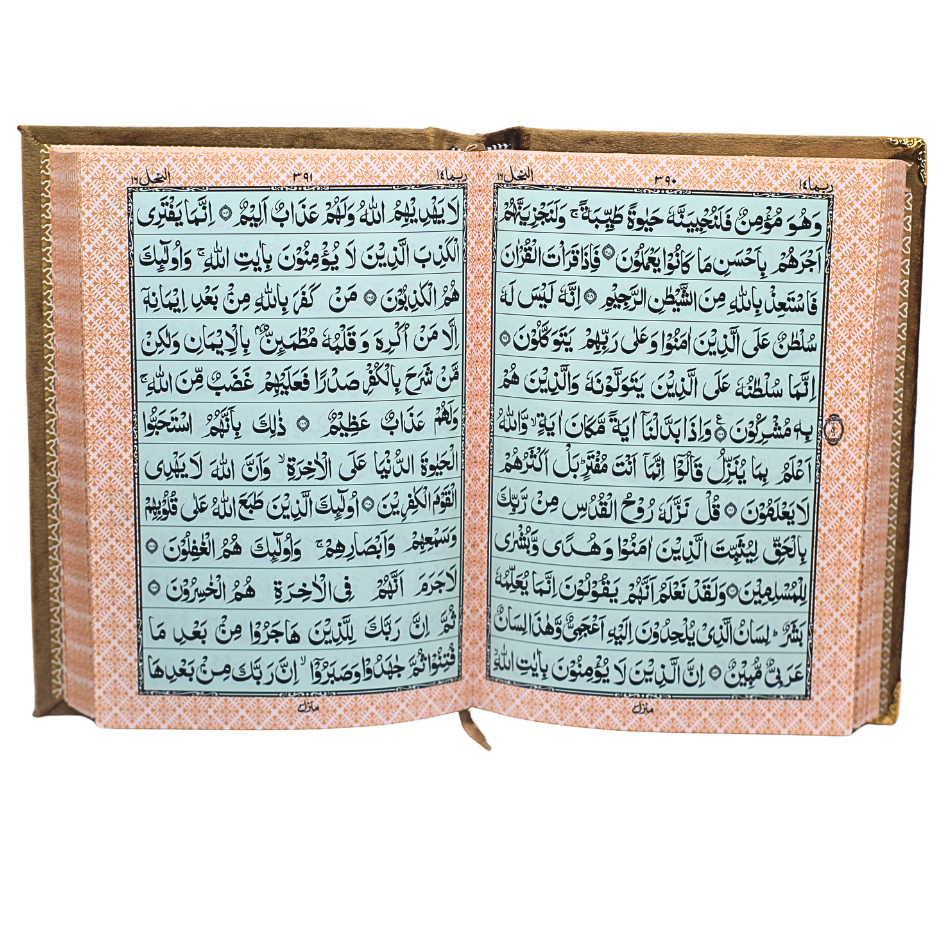 ربما ١٤
٣٩٠
النحل ١٦
وَهُوَ مُؤْمِنٌ فَلَنُحْيِيَنَّهٗ حَيٰوةً طَيِّبَةً ۚ وَلَنَجْزِيَنَّهُمْ
اَجْرَهُمْ بِاَحْسَنِ مَا كَانُوْا يَعْمَلُوْنَ ۝ فَاِذَا قَرَاْتَ الْقُرْاٰنَ
فَاسْتَعِذْ بِاللّٰهِ مِنَ الشَّيْطٰنِ الرَّجِيْمِ ۝ اِنَّهٗ لَيْسَ لَهٗ
سُلْطٰنٌ عَلَى الَّذِيْنَ اٰمَنُوْا وَعَلٰى رَبِّهِمْ يَتَوَكَّلُوْنَ ۝
اِنَّمَا سُلْطٰنُهٗ عَلَى الَّذِيْنَ يَتَوَلَّوْنَهٗ وَالَّذِيْنَ هُمْ
بِهٖ مُشْرِكُوْنَ ۝ وَاِذَا بَدَّلْنَاۤ اٰيَةً مَّكَانَ اٰيَةٍ ۙ وَّاللّٰهُ
اَعْلَمُ بِمَا يُنَزِّلُ قَالُوْۤا اِنَّمَاۤ اَنْتَ مُفْتَرٍ ؕ بَلْ اَكْثَرُهُمْ
لَا يَعْلَمُوْنَ ۝ قُلْ نَزَّلَهٗ رُوْحُ الْقُدُسِ مِنْ رَّبِّكَ
بِالْحَقِّ لِيُثَبِّتَ الَّذِيْنَ اٰمَنُوْا وَهُدًى وَّبُشْرٰى
لِلْمُسْلِمِيْنَ ۝ وَلَقَدْ نَعْلَمُ اَنَّهُمْ يَقُوْلُوْنَ اِنَّمَا يُعَلِّمُهٗ
بَشَرٌ ؕ لِسَانُ الَّذِيْ يُلْحِدُوْنَ اِلَيْهِ اَعْجَمِيٌّ وَّهٰذَا لِسَانٌ
عَرَبِيٌّ مُّبِيْنٌ ۝ اِنَّ الَّذِيْنَ لَا يُؤْمِنُوْنَ بِاٰيٰتِ اللّٰهِ ۙ
منزل
ربما ١٤
٣٩١
النحل ١٦
لَا يَهْدِيْهِمُ اللّٰهُ وَلَهُمْ عَذَابٌ اَلِيْمٌ ۝ اِنَّمَا يَفْتَرِى
الْكَذِبَ الَّذِيْنَ لَا يُؤْمِنُوْنَ بِاٰيٰتِ اللّٰهِ ۚ وَاُولٰٓئِكَ
هُمُ الْكٰذِبُوْنَ ۝ مَنْ كَفَرَ بِاللّٰهِ مِنْۢ بَعْدِ اِيْمَانِهٖۤ
اِلَّا مَنْ اُكْرِهَ وَقَلْبُهٗ مُطْمَئِنٌّۢ بِالْاِيْمَانِ وَلٰكِنْ
مَّنْ شَرَحَ بِالْكُفْرِ صَدْرًا فَعَلَيْهِمْ غَضَبٌ مِّنَ اللّٰهِ ۚ
وَلَهُمْ عَذَابٌ عَظِيْمٌ ۝ ذٰلِكَ بِاَنَّهُمُ اسْتَحَبُّوا
الْحَيٰوةَ الدُّنْيَا عَلَى الْاٰخِرَةِ ۙ وَاَنَّ اللّٰهَ لَا يَهْدِى
الْقَوْمَ الْكٰفِرِيْنَ ۝ اُولٰٓئِكَ الَّذِيْنَ طَبَعَ اللّٰهُ عَلٰى قُلُوْبِهِمْ
وَسَمْعِهِمْ وَاَبْصَارِهِمْ ۚ وَاُولٰٓئِكَ هُمُ الْغٰفِلُوْنَ ۝
لَا جَرَمَ اَنَّهُمْ فِى الْاٰخِرَةِ هُمُ الْخٰسِرُوْنَ ۝
ثُمَّ اِنَّ رَبَّكَ لِلَّذِيْنَ هَاجَرُوْا مِنْۢ بَعْدِ مَا
فُتِنُوْا ثُمَّ جٰهَدُوْا وَصَبَرُوْۤا ۙ اِنَّ رَبَّكَ مِنْۢ بَعْدِهَا
منزل